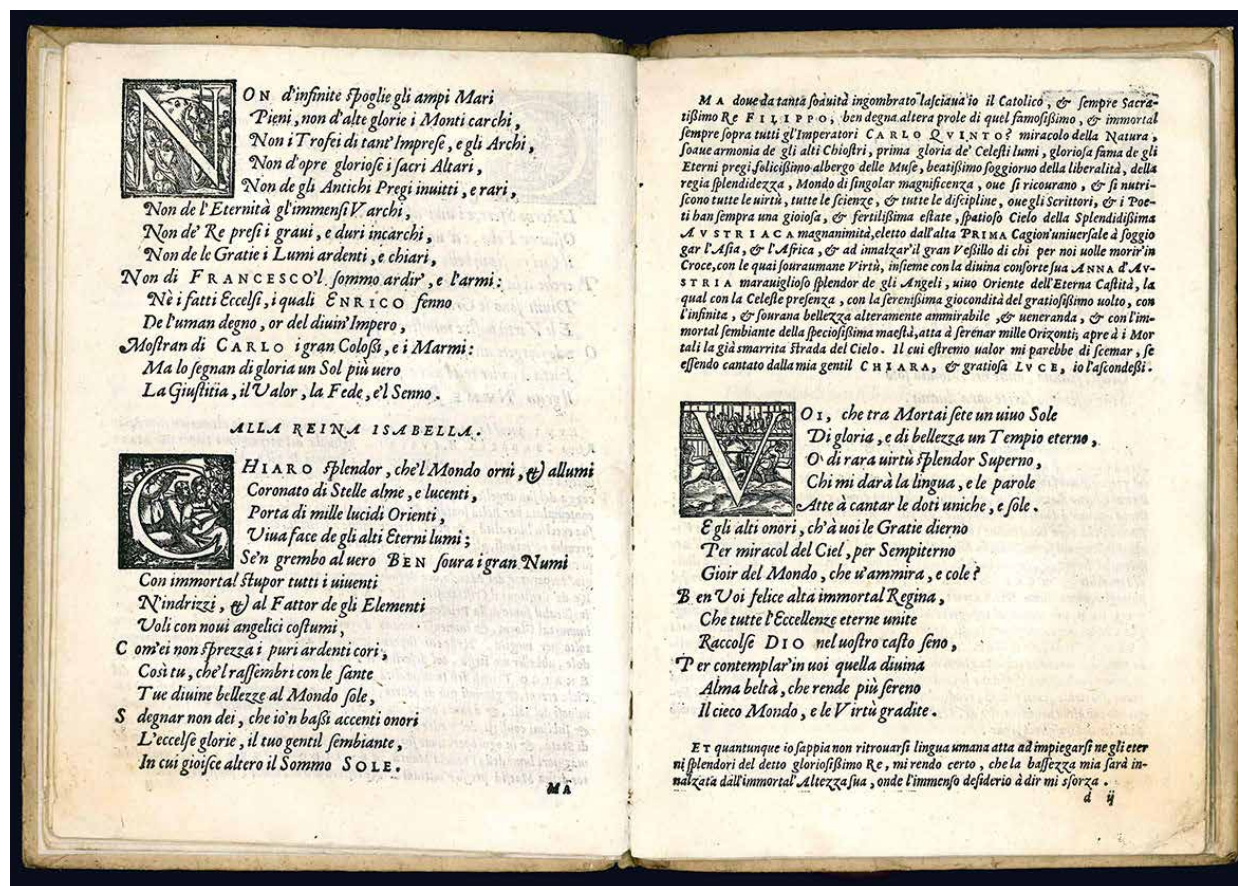 NON d'infinite spoglie gli ampi Mari
Pieni, non d'alte glorie i Monti carchi,
Non i Trofei di tant'Imprese, e gli Archi,
Non d'opre gloriose i sacri Altari,
Non de gli Antichi Pregi inuitti, e rari,
Non de l'Eternità gl'immensi Varchi,
Non de' Re presi i graui, e duri incarchi,
Non de le Gratie i Lumi ardenti, e chiari,
Non di FRANCESCO'l sommo ardir', e l'armi:
Nè i fatti Eccelsi, i quali ENRICO fenno
De l'uman degno, or del diuin'Impero,
Mostran di CARLO i gran Colossi, e i Marmi:
Ma lo segnan di gloria un Sol più uero
La Giustitia, il Valor, la Fede, e'l Senno.
ALLA REINA ISABELLA.
CHIARO splendor, che'l Mondo orni, & allumi
Coronato di Stelle alme, e lucenti,
Porta di mille lucidi Orienti,
Viua face de gli alti Eterni lumi;
Se'n grembo al uero BEN soura i gran Numi
Con immortal stupor tutti i uiuenti
N'indrizzi, & al Fattor de gli Elementi
Voli con noui angelici costumi,
Com'ei non sprezza i puri ardenti cori,
Così tu, che'l rassembri con le sante
Tue diuine bellezze al Mondo sole,
Sdegnar non dei, che io'n bassi accenti onori
L'eccelse glorie, il tuo gentil sembiante,
In cui gioisce altero il Sommo SOLE.
MA
MA doue da tanta soauità ingombrato lasciaua io il Catolico, & sempre Sacra-
tissimo Re FILIPPO, ben degna altera prole di quel famosissimo, & immortal
sempre sopra tutti gl'Imperatori CARLO QVINTO? miracolo della Natura,
soaue armonia de gli alti Chiostri, prima gloria de' Celesti lumi, gloriosa fama de gli
Eterni pregi, solicissimo albergo delle Muse, beatissimo soggiorno della liberalità, della
regia splendidezza, Mondo di singolar magnificenza, oue si ricourano, & si nutri-
scono tutte le uirtù, tutte le scienze, & tutte le discipline, oue gli Scrittori, & i Poe-
ti han sempre una gioiosa, & fertilissima estate, spatioso Cielo della Splendidissima
AVSTRIACA magnanimità, eletto dall'alta PRIMA Cagion'uniuersale à soggio
gar l'Asia, & l'Africa, & ad innalzar'il gran Vessillo di chi per noi uolle morir'in
Croce, con le quai souraumane Virtù, insieme con la diuina consorte sua ANNA d'AV-
STRIA marauiglioso splendor de gli Angeli, uiuo Oriente dell'Eterna Castità, la
qual con la Celeste presenza, con la serenissima giocondità del gratiosissimo uolto, con
l'infinita, & sourana bellezza alteramente ammirabile, & ueneranda, & con l'im-
mortal sembiante della speciosissima maestà, atta à serenar mille Orizonti, apre à i Mor
tali la già smarrita Strada del Cielo. Il cui estremo ualor mi parebbe di scemar, se
essendo cantato dalla mia gentil CHIARA, & gratiosa LVCE, io l'ascondessi.
VOI, che tra Mortai sete un uiuo Sole
Di gloria, e di bellezza un Tempio eterno,
O' di rara uirtù splendor Superno,
Chi mi darà la lingua, e le parole
Atte à cantar le doti uniche, e sole.
E gli alti onori, ch'à uoi le Gratie dierno
Per miracol del Ciel, per Sempiterno
Gioir del Mondo, che u'ammira, e cole?
Ben Voi felice alta immortal Regina,
Che tutte l'Eccellenze eterne unite
Raccolse DIO nel uostro casto seno,
Per contemplar'in uoi quella diuina
Alma beltà, che rende più sereno
Il cieco Mondo, e le Virtù gradite.
ET quantunque io sappia non ritrouarsi lingua umana atta ad impiegarsi ne gli eter
ni splendori del detto gloriosissimo Re, mi rendo certo, che la bassezza mia sarà in-
nalzata dall'immortal'Altezza sua, onde l'immenso desiderio à dir mi sforza.
d ij